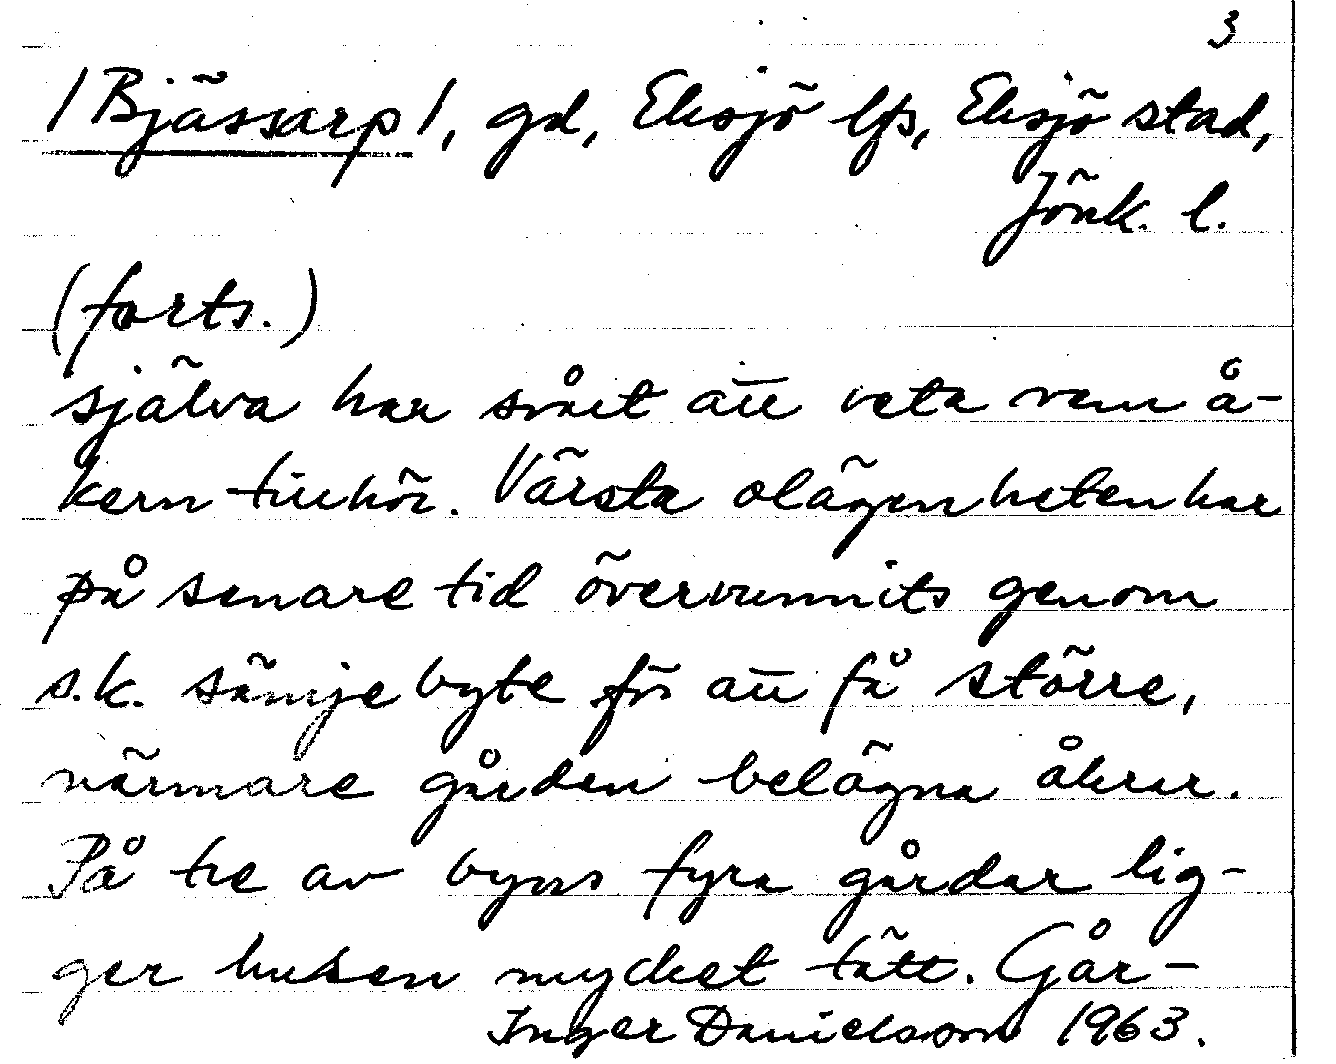 3
/Bjässarp/, gd, Eksjö lfs, Eksjö stad,
Jönk. l.
(forts.)
själva har svårt att veta vem å-
kern tillhör. Värsta olägenheten har
på senare tid övervunnits genom
s.k. sämjebyte för att få större,
närmare gården belägna åkrar.
På tre av byns fyra gårdar lig-
ger husen mycket tätt. Går-
Inger Danielsson 1963.